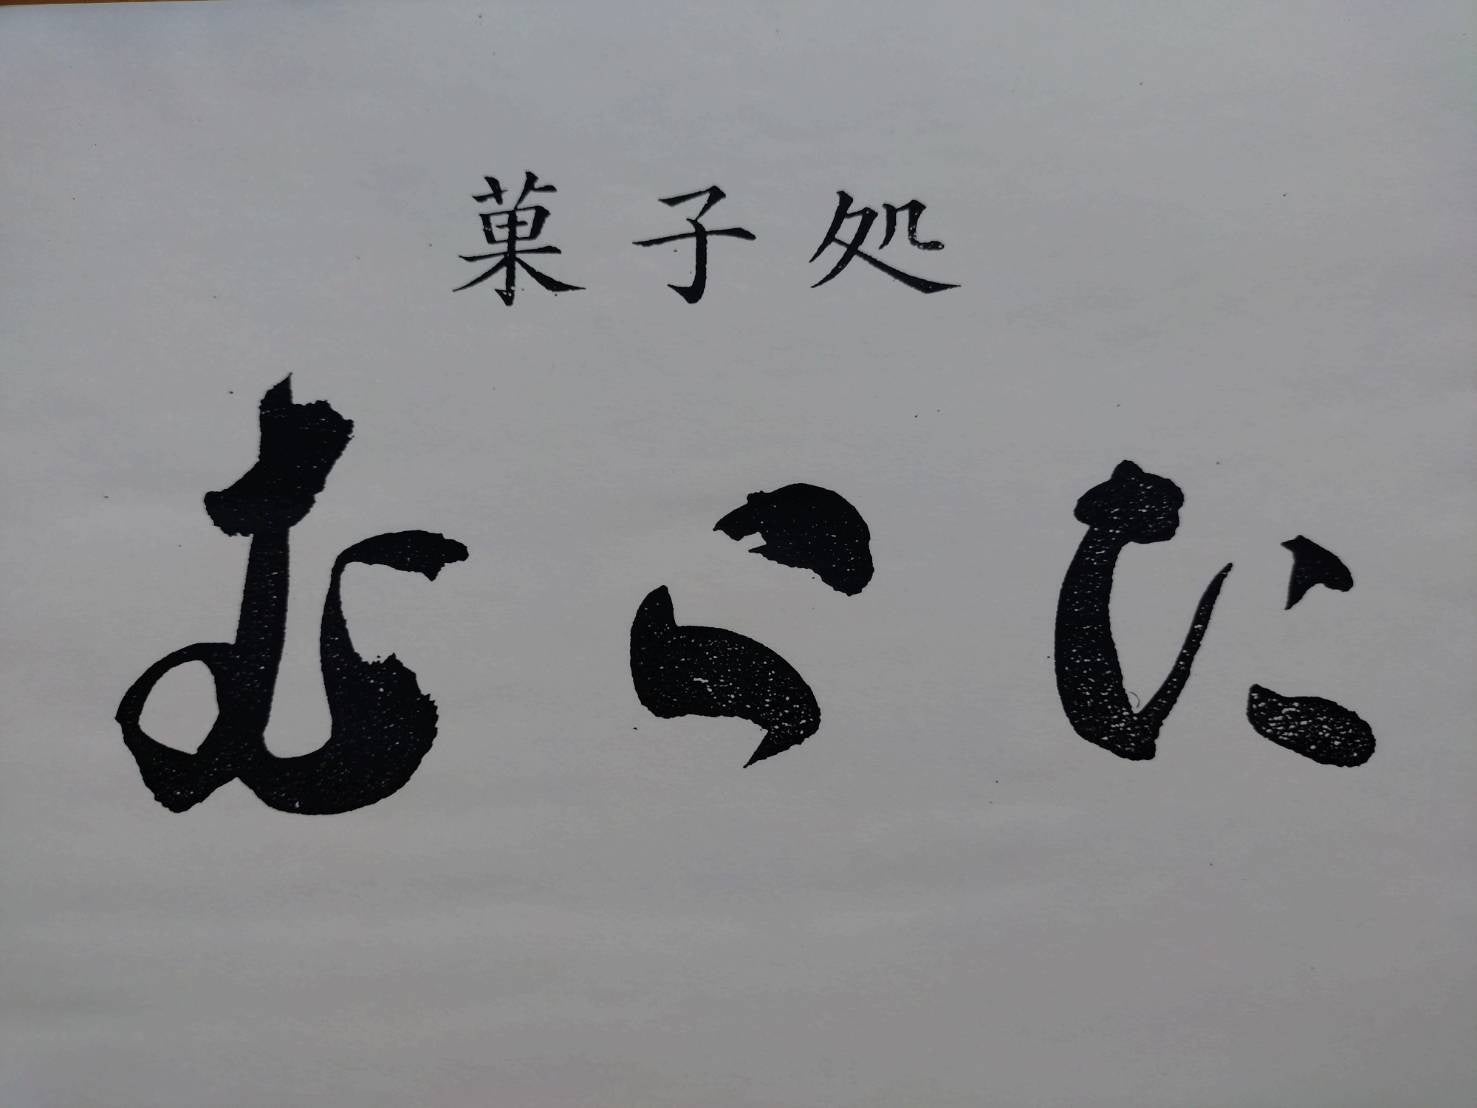 菓子処
むらた